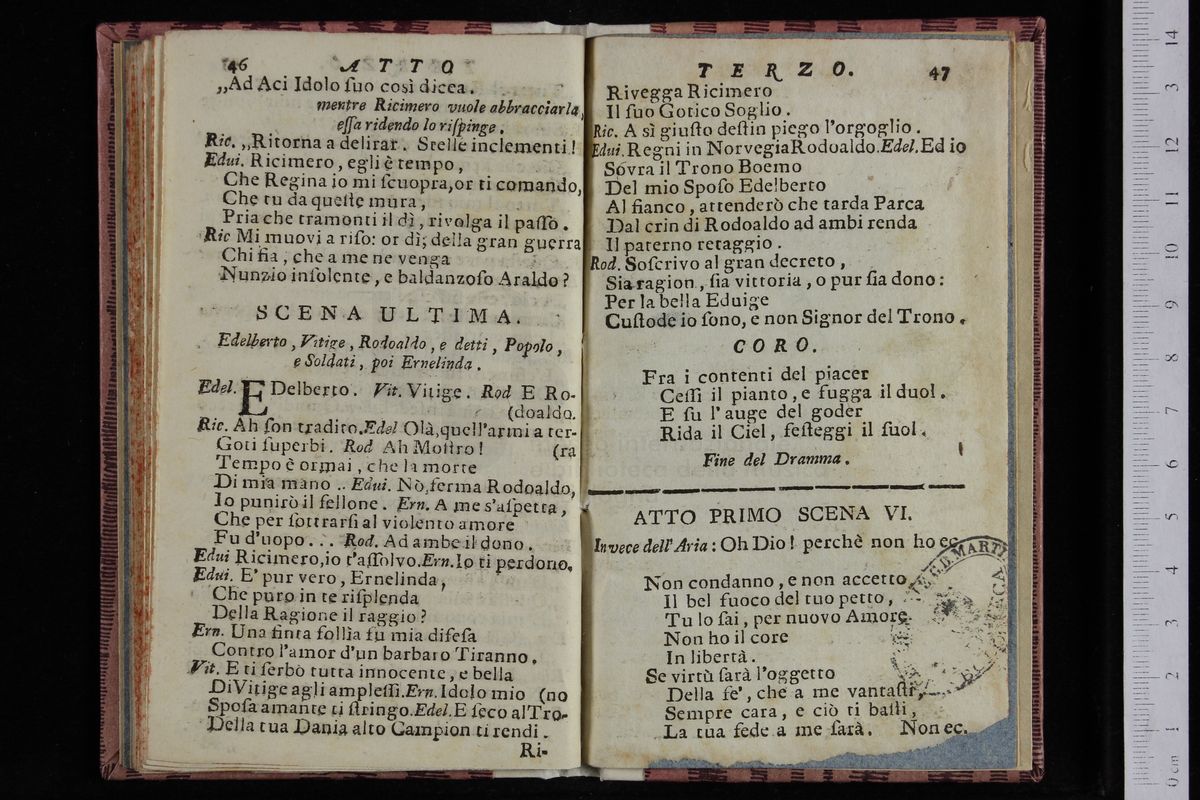 46 ATTO
„Ad Aci Idolo ſuo così dicea.
mentre Ricimero vuole abbracciarla,
eſſa ridendo lo riſpinge.
Ric. „Ritorna a delirar. Stelle inclementi!
Edui. Ricimero, egli è tempo,
Che Regina io mi ſcuopra, or ti comando,
Che tu da queſte mura,
Pria che tramonti il dì, rivolga il paſſo.
Ric Mi muovi a riſo: or dì; della gran guerra
Chi fia, che a me ne venga
Nunzio inſolente, e baldanzoſo Araldo?
SCENA ULTIMA.
Edelberto, Vitige, Rodoaldo, e detti, Popolo,
e Soldati, poi Ernelinda.
Edel. EDelberto. Vit. Vitige. Rod E Ro-
(doaldo.
Ric. Ah ſon tradito. Edel Olà, quell'armi a ter-
Goti ſuperbi. Rod Ah Moſtro! (ra
Tempo è ormai, che la morte
Di mia mano .. Edui. Nò, ferma Rodoaldo,
Io punirò il fellone. Ern. A me s'aſpetta,
Che per ſottrarſi al violento amore
Fu d'uopo... Rod. Ad ambe il dono.
Edui Ricimero, io t'aſſolvo. Ern. Io ti perdono,
Edui. E' pur vero, Ernelinda,
Che puro in te riſplenda
Della Ragione il raggio?
Ern. Una finta follia fu mia difeſa
Contro l'amor d'un barbaro Tiranno.
Vit. E ti ſerbò tutta innocente, e bella
Di Vitige agli ampleſſi. Ern. Idolo mio (no
Spoſa amante ti ſtringo. Edel. E ſeco al Tro-
Della tua Dania alto Campion ti rendi.
Ri-
TERZO. 47
Rivegga Ricimero
Il ſuo Gotico Soglio.
Ric. A sì giuſto deſtin piego l'orgoglio.
Edui. Regni in Norvegia Rodoaldo. Edel. Ed io
Sóvra il Trono Boemo
Del mio Spoſo Edelberto
Al fianco, attenderò che tarda Parca
Dal crin di Rodoaldo ad ambi renda
Il paterno retaggio.
Rod. Soſcrivo al gran decreto,
Sia ragion, ſia vittoria, o pur ſia dono:
Per la bella Eduige
Cuſtode io ſono, e non Signor del Trono.
CORO.
Fra i contenti del piacer
Ceſſi il pianto, e fugga il duol.
E ſu l'auge del goder
Rida il Ciel, feſteggi il ſuol.
Fine del Dramma.
ATTO PRIMO SCENA VI.
Invece dell' Aria: Oh Dio! perchè non ho ec.
Non condanno, e non accetto,
Il bel fuoco del tuo petto,
Tu lo ſai, per nuovo Amore
Non ho il core
In libertà.
Se virtù ſarà l'oggetto
Della fe', che a me vantaſti,
Sempre cara, e ciò ti baſti,
La tua fede a me ſarà. Non ec.
G.B. MARTI
0 cm 1 2 3 4 5 6 7 8 9 10 11 12 13 14